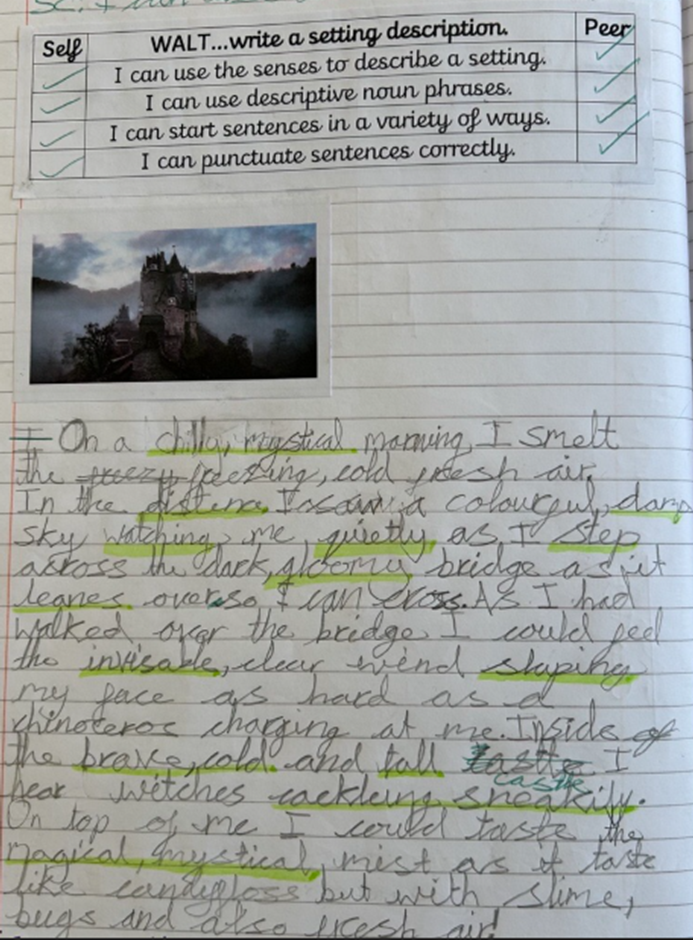 Self WALT...write a setting description. Peer
I can use the senses to describe a setting.
I can use descriptive noun phrases.
I can start sentences in a variety of ways.
I can punctuate sentences correctly.
On a chilly, mystical morning, I smelt
the freezing, cold fresh air.
In the distenc, I saw a colourful, damp
sky watching me quietly as I step
across the dark, gloomy bridge as it
leanes over so I can cross. As I had
walked over the bridge I could feel
the invisable, clear wind slaping
my face as hard as a
rhinoceros charging at me. Inside of
the brave, cold and tall castle I
hear witches cackleing sneakily.
On top of me I could taste the
magical, mystical mist as it taste
like candyfloss but with slime,
bugs and also fresh air!